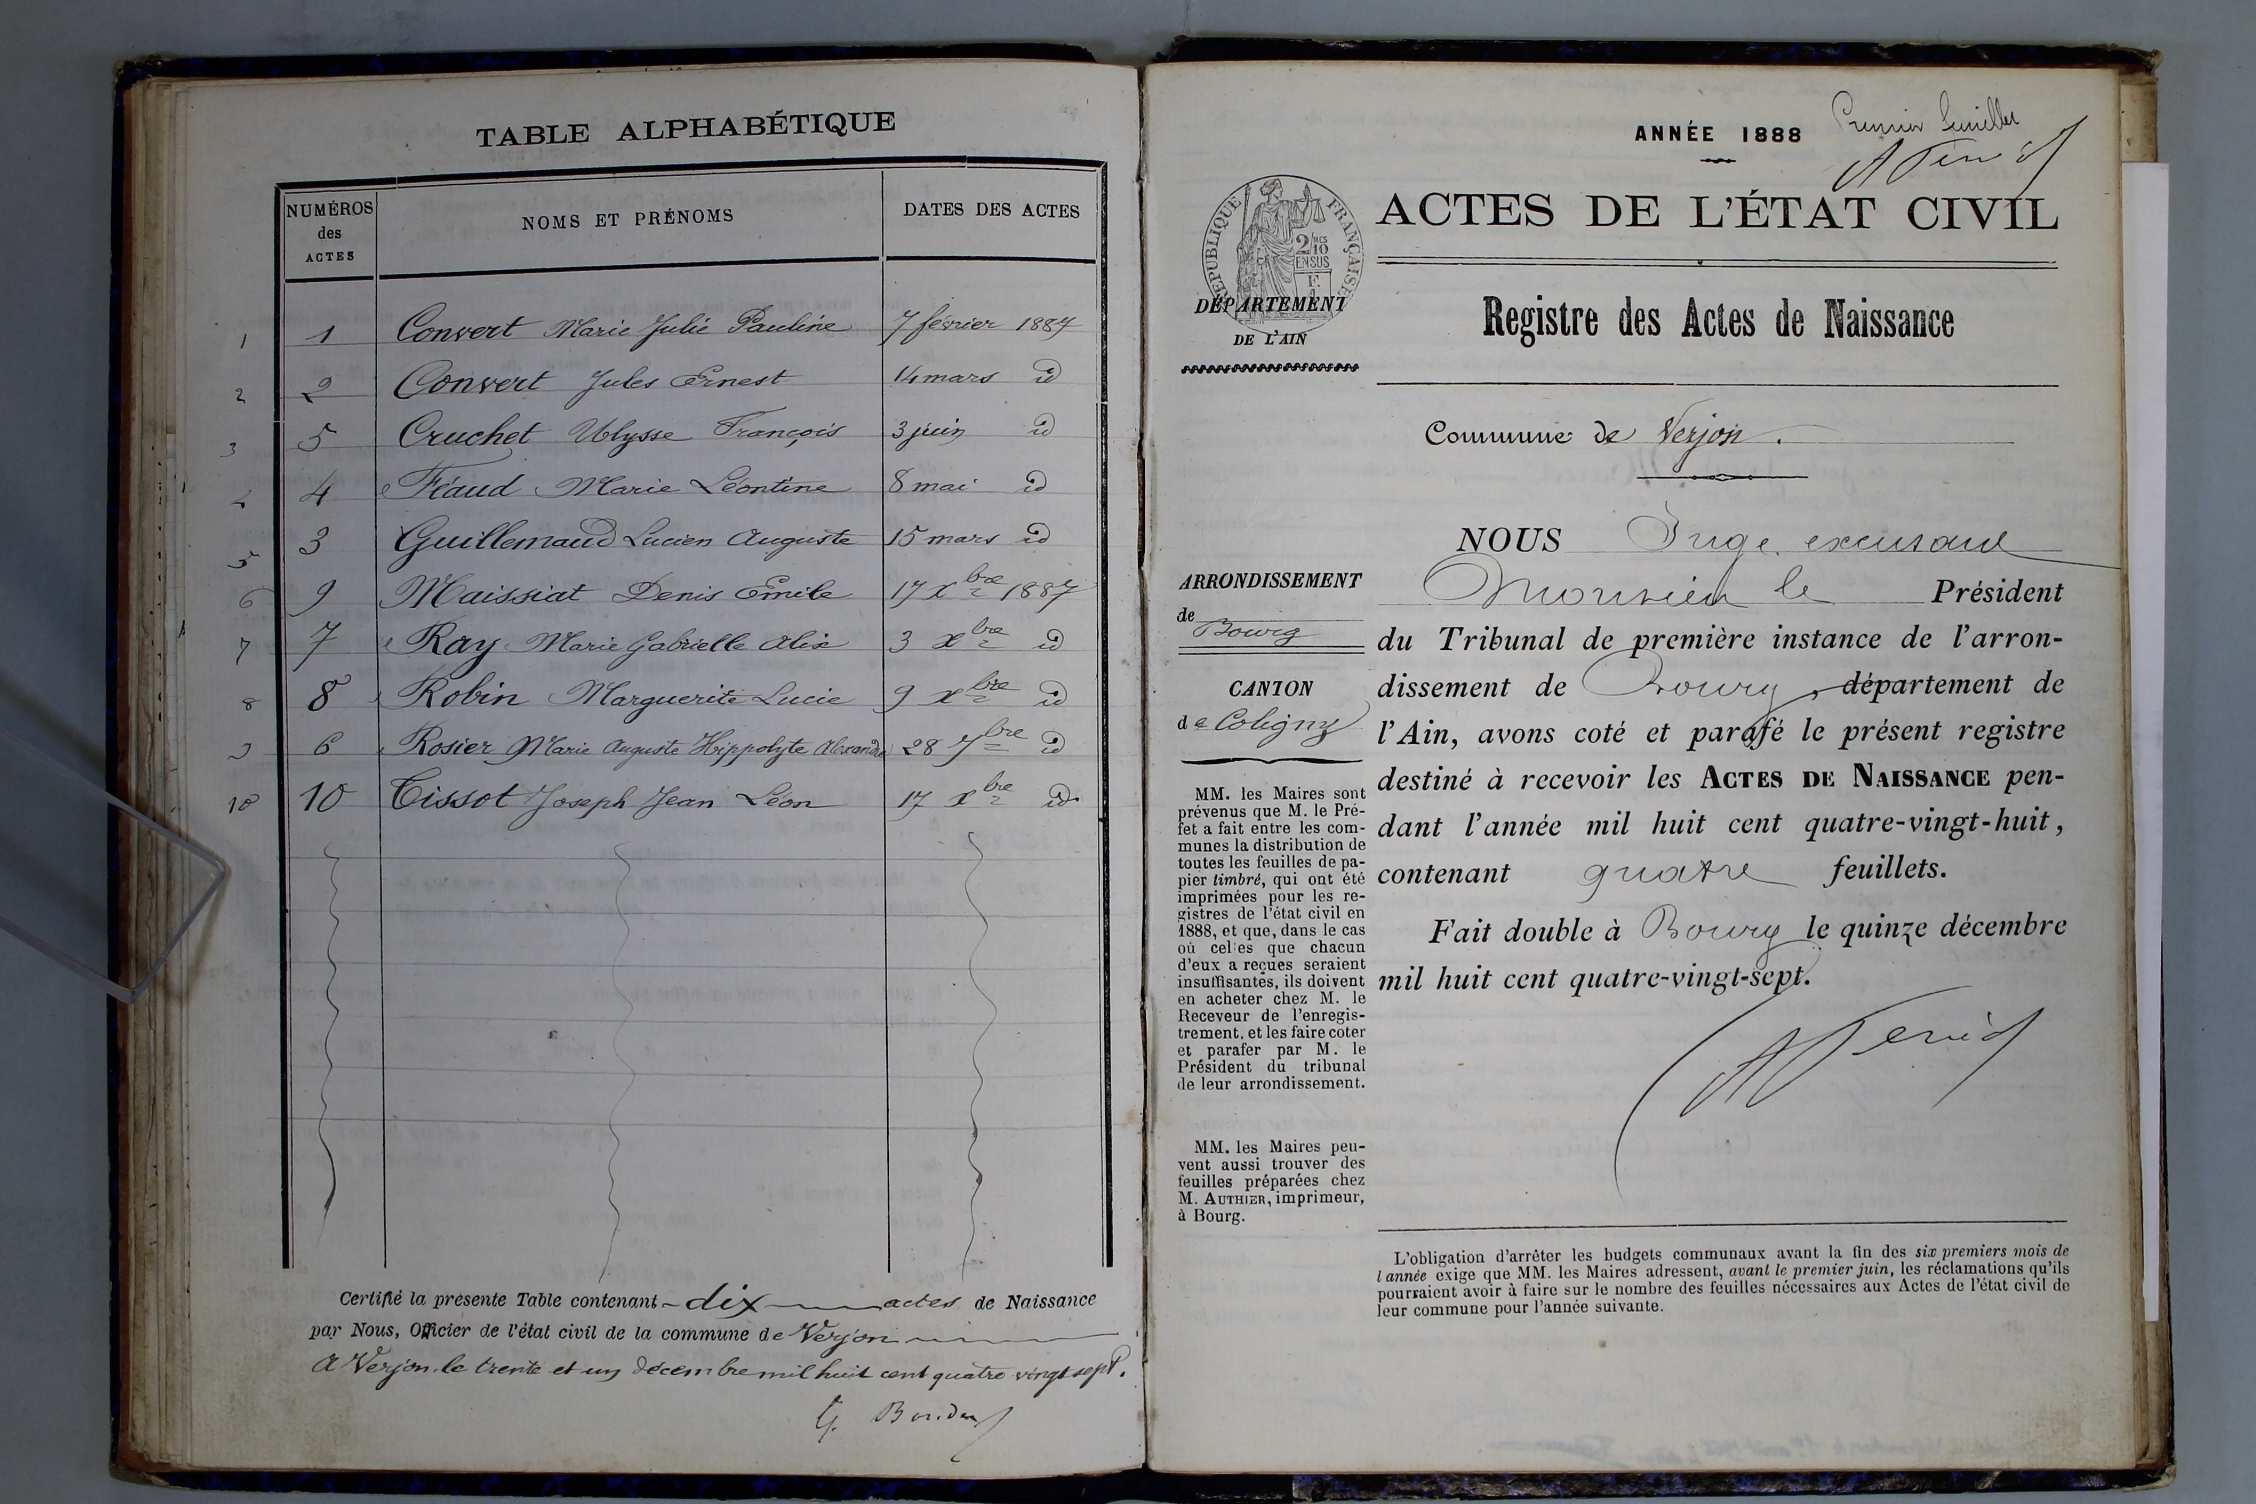 TABLE ALPHABÉTIQUE
NUMÉROS des ACTES NOMS ET PRÉNOMS DATES DES ACTES
1 1 Convert Marie Julie Pauline 7 février 1887
2 2 Convert Jules Ernest 14 mars id
3 5 Cruchet Ulysse François 3 juin id
4 4 Féaud Marie Léontine 8 mai id
5 3 Guillemaud Lucien Auguste 15 mars id
6 9 Maissiat Denis Emile 17 xbre 1887
7 7 Ray Marie Gabrielle Alix 3 xbre id
8 8 Robin Marguerite Lucie 9 xbre id
9 6 Rosier Marie Auguste Hippolyte Alexandre 28 7bre id
10 10 Tissot Joseph Jean Léon 17 xbre id.
Certifié la présente Table contenant dix actes de Naissance
par Nous, Officier de l'état civil de la commune de Verjon
A Verjon le trente et un décembre mil huit cent quatre vingt sept.
Premier feuillet
ANNÉE 1888
ACTES DE L'ÉTAT CIVIL
RÉPUBLIQUE FRANÇAISE
2/10
EN SUS
DÉPARTEMENT
DE L'AIN
Registre des Actes de Naissance
Commune de Verjon.
ARRONDISSEMENT
de Bourg
CANTON
de Coligny
MM. les Maires sont
prévenus que M. le Pré-
fet a fait entre les com-
munes la distribution de
toutes les feuilles de pa-
pier timbré, qui ont été
imprimées pour les re-
gistres de l'état civil en
1888, et que, dans le cas
où celles que chacun
d'eux a reçues seraient
insuffisantes, ils doivent
en acheter chez M. le
Receveur de l'enregis-
trement, et les faire coter
et parafer par M. le
Président du tribunal
de leur arrondissement.
MM. les Maires peu-
vent aussi trouver des
feuilles préparées chez
M. AUTHIER, imprimeur,
à Bourg.
NOUS Juge excusant
Monsieur le Président
du Tribunal de première instance de l'arron-
dissement de Bourg, département de
l'Ain, avons coté et parafé le présent registre
destiné à recevoir les ACTES DE NAISSANCE pen-
dant l'année mil huit cent quatre-vingt-huit,
contenant quatre feuillets.
Fait double à Bourg le quinze décembre
mil huit cent quatre-vingt-sept.
L'obligation d'arrêter les budgets communaux avant la fin des six premiers mois de
l'année exige que MM. les Maires adressent, avant le premier juin, les réclamations qu'ils
pourraient avoir à faire sur le nombre des feuilles nécessaires aux Actes de l'état civil de
leur commune pour l'année suivante.